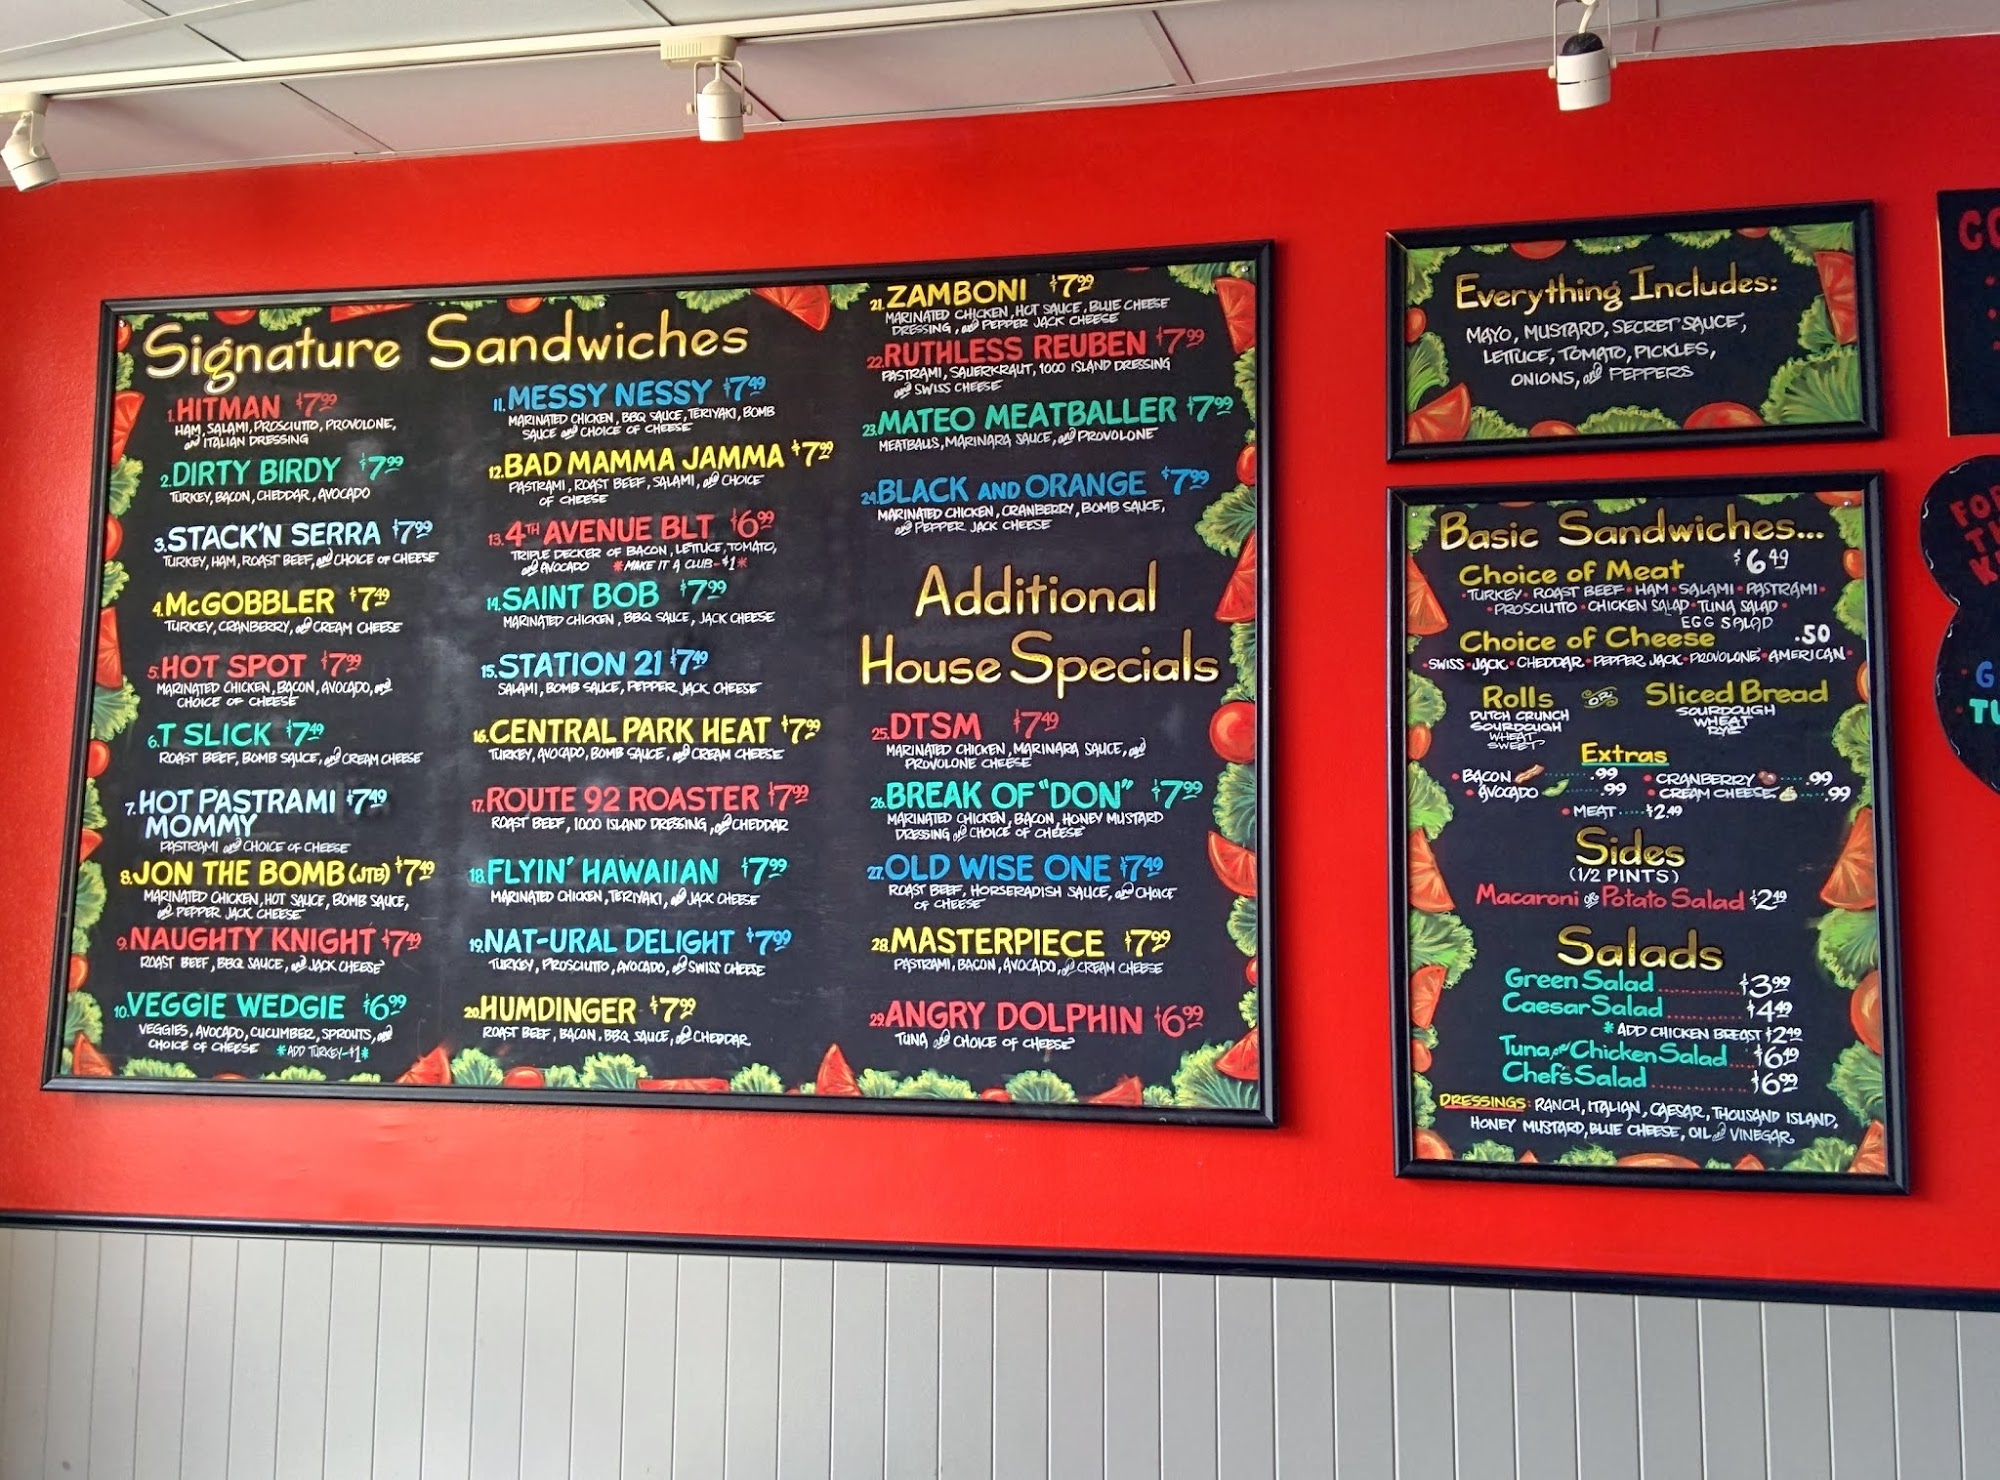 Signature Sandwiches
1. HITMAN $7.99
HAM, SALAMI, PROSCIUTTO, PROVOLONE,
and ITALIAN DRESSING
2. DIRTY BIRDY $7.99
TURKEY, BACON, CHEDDAR, AVOCADO
3. STACK'N SERRA $7.99
TURKEY, HAM, ROAST BEEF, and CHOICE OF CHEESE
4. McGOBBLER $7.49
TURKEY, CRANBERRY, and CREAM CHEESE
5. HOT SPOT $7.99
MARINATED CHICKEN, BACON, AVOCADO, and
CHOICE OF CHEESE
6. T SLICK $7.49
ROAST BEEF, BOMB SAUCE, and CREAM CHEESE
7. HOT PASTRAMI $7.49
MOMMY
PASTRAMI and CHOICE OF CHEESE
8. JON THE BOMB (JTB) $7.49
MARINATED CHICKEN, HOT SAUCE, BOMB SAUCE,
and PEPPER JACK CHEESE
9. NAUGHTY KNIGHT $7.49
ROAST BEEF, BBQ SAUCE, and JACK CHEESE
10. VEGGIE WEDGIE $6.99
VEGGIES, AVOCADO, CUCUMBER, SPROUTS, and
CHOICE OF CHEESE *ADD TURKEY-$1*
11. MESSY NESSY $7.49
MARINATED CHICKEN, BBQ SAUCE, TERIYAKI, BOMB
SAUCE and CHOICE OF CHEESE
12. BAD MAMMA JAMMA $7.99
PASTRAMI, ROAST BEEF, SALAMI, and CHOICE
OF CHEESE
13. 4TH AVENUE BLT $6.99
TRIPLE DECKER OF BACON, LETTUCE, TOMATO,
and AVOCADO *MAKE IT A CLUB-$1*
14. SAINT BOB $7.99
MARINATED CHICKEN, BBQ SAUCE, JACK CHEESE
15. STATION 21 $7.49
SALAMI, BOMB SAUCE, PEPPER JACK CHEESE
16. CENTRAL PARK HEAT $7.99
TURKEY, AVOCADO, BOMB SAUCE, and CREAM CHEESE
17. ROUTE 92 ROASTER $7.99
ROAST BEEF, 1000 ISLAND DRESSING, and CHEDDAR
18. FLYIN' HAWAIIAN $7.99
MARINATED CHICKEN, TERIYAKI, and JACK CHEESE
19. NAT-URAL DELIGHT $7.99
TURKEY, PROSCIUTTO, AVOCADO, and SWISS CHEESE
20. HUMDINGER $7.99
ROAST BEEF, BACON, BBQ SAUCE, and CHEDDAR
21. ZAMBONI $7.99
MARINATED CHICKEN, HOT SAUCE, BLUE CHEESE
DRESSING, and PEPPER JACK CHEESE
22. RUTHLESS REUBEN $7.99
PASTRAMI, SAUERKRAUT, 1000 ISLAND DRESSING
and SWISS CHEESE
23. MATEO MEATBALLER $7.99
MEATBALLS, MARINARA SAUCE, and PROVOLONE
24. BLACK AND ORANGE $7.99
MARINATED CHICKEN, CRANBERRY, BOMB SAUCE,
and PEPPER JACK CHEESE
Additional
House Specials
25. DTSM $7.49
MARINATED CHICKEN, MARINARA SAUCE, and
PROVOLONE CHEESE
26. BREAK OF "DON" $7.99
MARINATED CHICKEN, BACON, HONEY MUSTARD
DRESSING and CHOICE OF CHEESE
27. OLD WISE ONE $7.49
ROAST BEEF, HORSERADISH SAUCE, and CHOICE
OF CHEESE
28. MASTERPIECE $7.99
PASTRAMI, BACON, AVOCADO, and CREAM CHEESE
29. ANGRY DOLPHIN $6.99
TUNA and CHOICE OF CHEESE
Everything Includes:
MAYO, MUSTARD, SECRET SAUCE,
LETTUCE, TOMATO, PICKLES,
ONIONS, and PEPPERS
Basic Sandwiches...
$6.49
Choice of Meat
• TURKEY • ROAST BEEF • HAM • SALAMI • PASTRAMI •
• PROSCIUTTO • CHICKEN SALAD • TUNA SALAD •
EGG SALAD
Choice of Cheese .50
• SWISS • JACK • CHEDDAR • PEPPER JACK • PROVOLONE • AMERICAN •
Rolls or Sliced Bread
DUTCH CRUNCH
SOURDOUGH
WHEAT
SWEET
SOURDOUGH
WHEAT
RYE
Extras
• BACON ....... .99 • CRANBERRY ..... .99
• AVOCADO ...... .99 CREAM CHEESE ... .99
• MEAT ..... $2.49
Sides
(1/2 PINTS)
Macaroni or Potato Salad $2.49
Salads
Green Salad ........ $3.99
Caesar Salad ........ $4.49
*ADD CHICKEN BREAST $2.49
Tuna or Chicken Salad .... $6.49
Chef's Salad ......... $6.99
DRESSINGS: RANCH, ITALIAN, CAESAR, THOUSAND ISLAND,
HONEY MUSTARD, BLUE CHEESE, OIL and VINEGAR